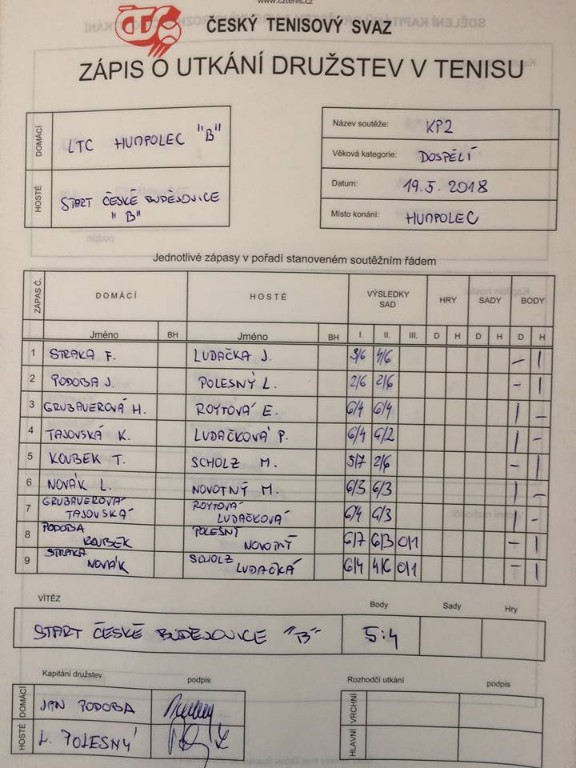 www.cztenis.cz
ČTS
ČESKÝ TENISOVÝ SVAZ
ZÁPIS O UTKÁNÍ DRUŽSTEV V TENISU
DOMÁCÍ LTC HUMPOLEC "B"
HOSTÉ START ČESKÉ BUDĚJOVICE
"B"
Název soutěže: KP2
Věková kategorie: DOSPĚLÍ
Datum: 19.5.2018
Místo konání: HUMPOLEC
Jednotlivé zápasy v pořadí stanoveném soutěžním řádem
ZÁPAS Č. DOMÁCÍ HOSTÉ VÝSLEDKY SAD HRY SADY BODY
Jméno BH Jméno BH I. II. III. D H D H D H
1 STRAKA F. LUDAČKA J. 3/6 4/6 – 1
2 PODOBA J. POLESNÝ L. 2/6 2/6 – 1
3 GRUBAUEROVÁ H. ROYTOVÁ E. 6/4 6/4 1 –
4 TAJOVSKÁ K. LUDAČKOVÁ P. 6/4 6/2 1 –
5 KOUBEK T. SCHOLZ M. 5/7 2/6 – 1
6 NOVÁK L. NOVOTNÝ M. 6/3 6/3 1 –
7 GRUBAUEROVÁ TAJOVSKÁ ROYTOVÁ LUDAČKOVÁ 6/4 6/3 1 –
8 PODOBA KOUBEK POLESNÝ NOVOTNÝ 6/7 6/3 0/1 – 1
9 STRAKA NOVÁK SCHOLZ LUDAČKA 6/4 4/6 0/1 – 1
VÍTĚZ Body Sady Hry
START ČESKÉ BUDĚJOVICE "B" 5:4
Kapitáni družstev podpis Rozhodčí utkání podpis
DOMÁCÍ JAN PODOBA VRCHNÍ
HOSTÉ L. POLESNÝ HLAVNÍ